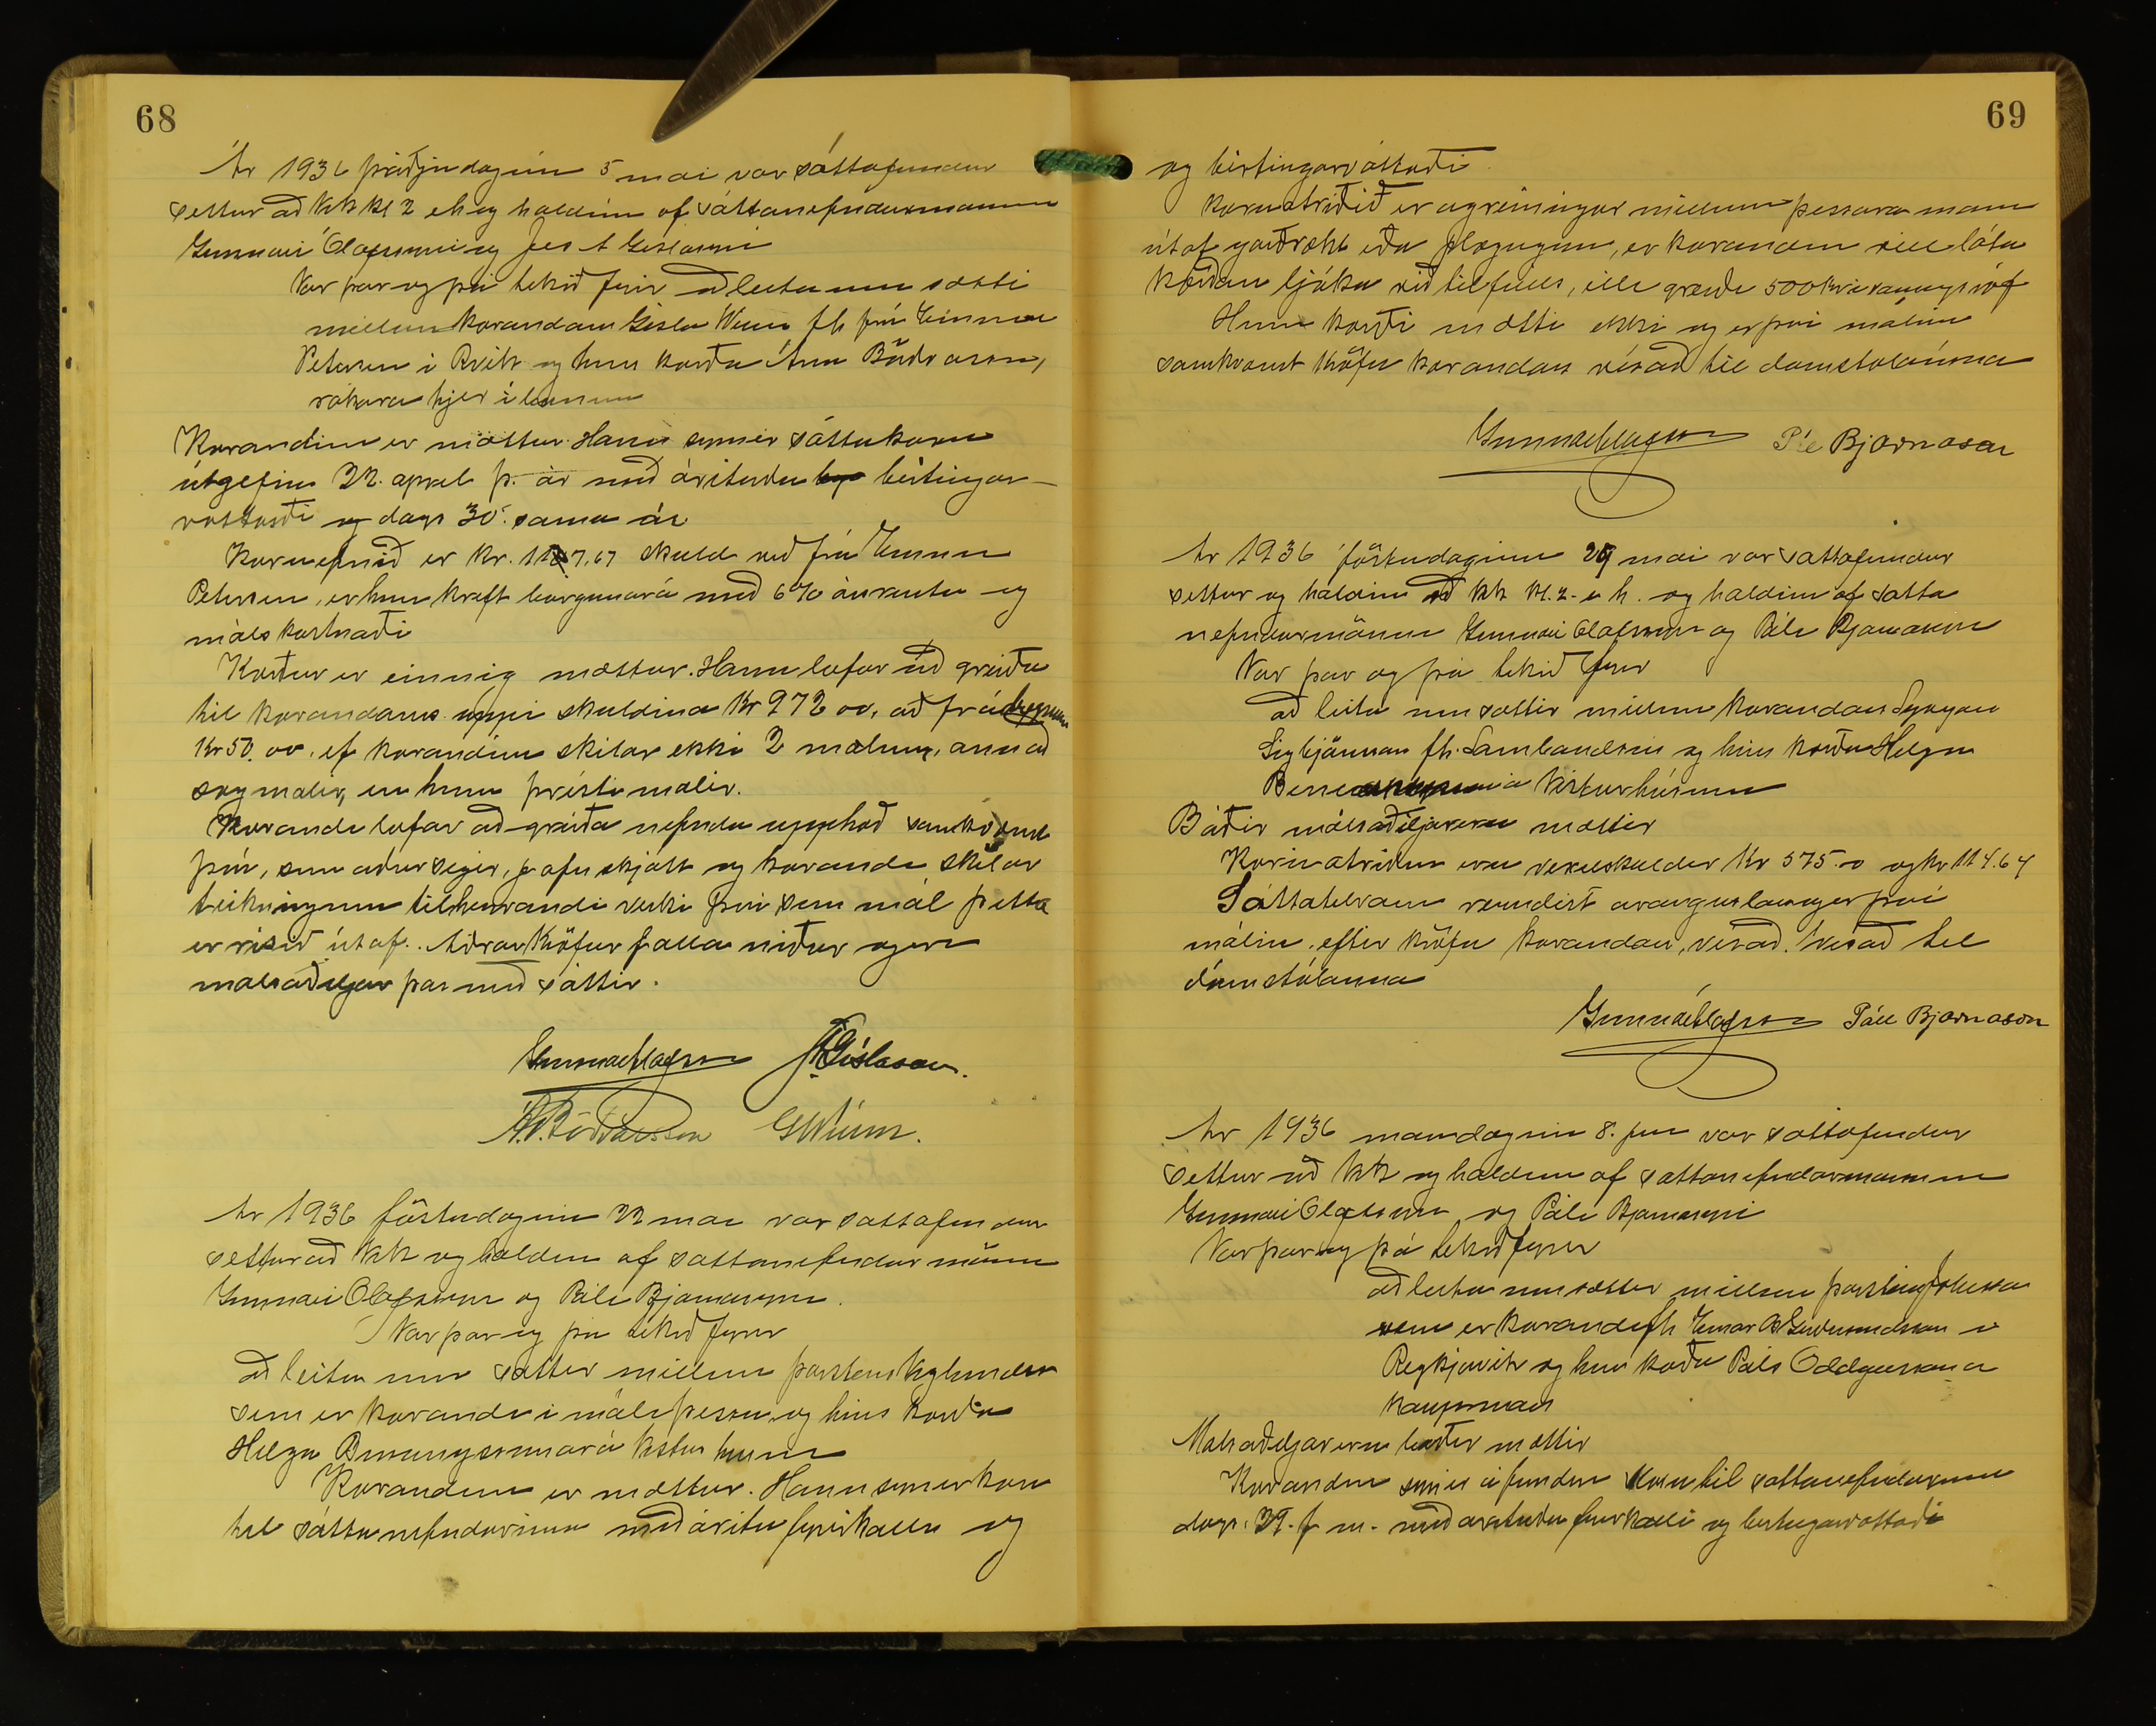 68
Ár 1936 þriðjudaginn 5 mai var sáttafundur
settur að kk kl 2 eh og haldinn af sáttanefndarmönnum
Gunnari Ólafssyni og Jes A Gislasyni
Var þar og þá tekið fyrir að leita um sætti
millum kærandans Gisla Wium fh frú Unnur
Petersen i Rvík og hins kærða Árna Böðvarssonar,
rakara hjer í bænum
Kærandinn er mættur. Hann synir sáttakæru
útgefin 22. apríl þ. ár með árituðu birtingar-
vottorði og dags 30. sama ár
Kæruefnið er kr. 1107.67 skuld við frú Unnur
Petersen, er hann kraft borgunar á með 6% ársrentu og
málskostnaði
Kærður er einnig mættur. Hann lofar að greiða
til kærandans uppi skuldina kr 972 00, að frádregnum
kr 50.00, ef kærandinn skilar ekki 2 mælum, annað
og mælir, en hinn þrísti mælir.
Kærandi lofar að greiða nefnda upphæð samkvæmt
því, sem aður segir, jafn skjótt og kærandi skilar
teikningum tilheyrandi verki því sem mál þetta
er risið útaf. Aðrar kröfur falla niður og eru
málsaðiljar þar með sáttir.
Gunnar Ólafsson JAGíslason.
Á. Böðvarsson GWíum.
Ár 1936 föstudaginn 22 mai var sattafundur
settur að kk og haldinn af sattanefndar mönnum
Gunnari Olafssyni og Páli Bjarnasyni.
Var þar og þá tekið fyrir
að leita um sættir millum þorsteins
sem er kærandi i máli þessu og hins kærða
Helga á Vesturhúsum
Kærandinn er mættur. Hann synir kæru
til sáttanefndarinnar með áritun fyrirkalli og
69
og birtingarvottorði.
Kæruatriðið er agreiningur millum þessara manna
út af garðrækt eða plægingu, er kærandinn vill láta
kærðan ljúka við til fulls, ella greiða 500 kr
Hinn kærði mætti ekki og er þvi málinu
samkvæmt kröfu kærandans vísað til domstolanna
Gunnar Ólafsson Páll Bjarnason
Ár 1936 föstudaginn 29 mai var sattafundur
settur og haldinn að kk kl. 2 e h. og haldinn af satta
nefndarmönnum Gunnari Olafssyni og Páli Bjarnasyni
Var þar og þá tekið fyrir
að leita um sættir millum kærandans
fh. Sambandsins og hins kærða Helga
á Vesturhúsum
Báðir málsaðiljar eru mættir
Kæruatriðin eru vexelskuldir Kr 575.0 og kr 114.64
Sáttatilraun reyndist árangurslaus er því
málinu, eftir kröfu kærandans, vísað. vísað til
dómstólanna
Gunnar Ólafsson Páll Bjarnason
Ár 1936 mánudaginn 8. juni var sáttafundur
settur að kk og haldinn af sattanefndarmönnum
Gunnari Olafssyni og Páli Bjarnasyni
Var þar og þá tekið fyrir
að leita um sættir millum þorsteins Johnson
sem er kærandi fh Einar B Guðmundsson i
Reykjavik og hins kærða Páls Oddgeirssonar
kaupmanns
Málsaðiljar eru báðir mættir
Kærandinn synir á fundinum kæru til sattanefndarinnar
dags. 29. f m. með arituðu fyrirkalli og birtingarvottorði